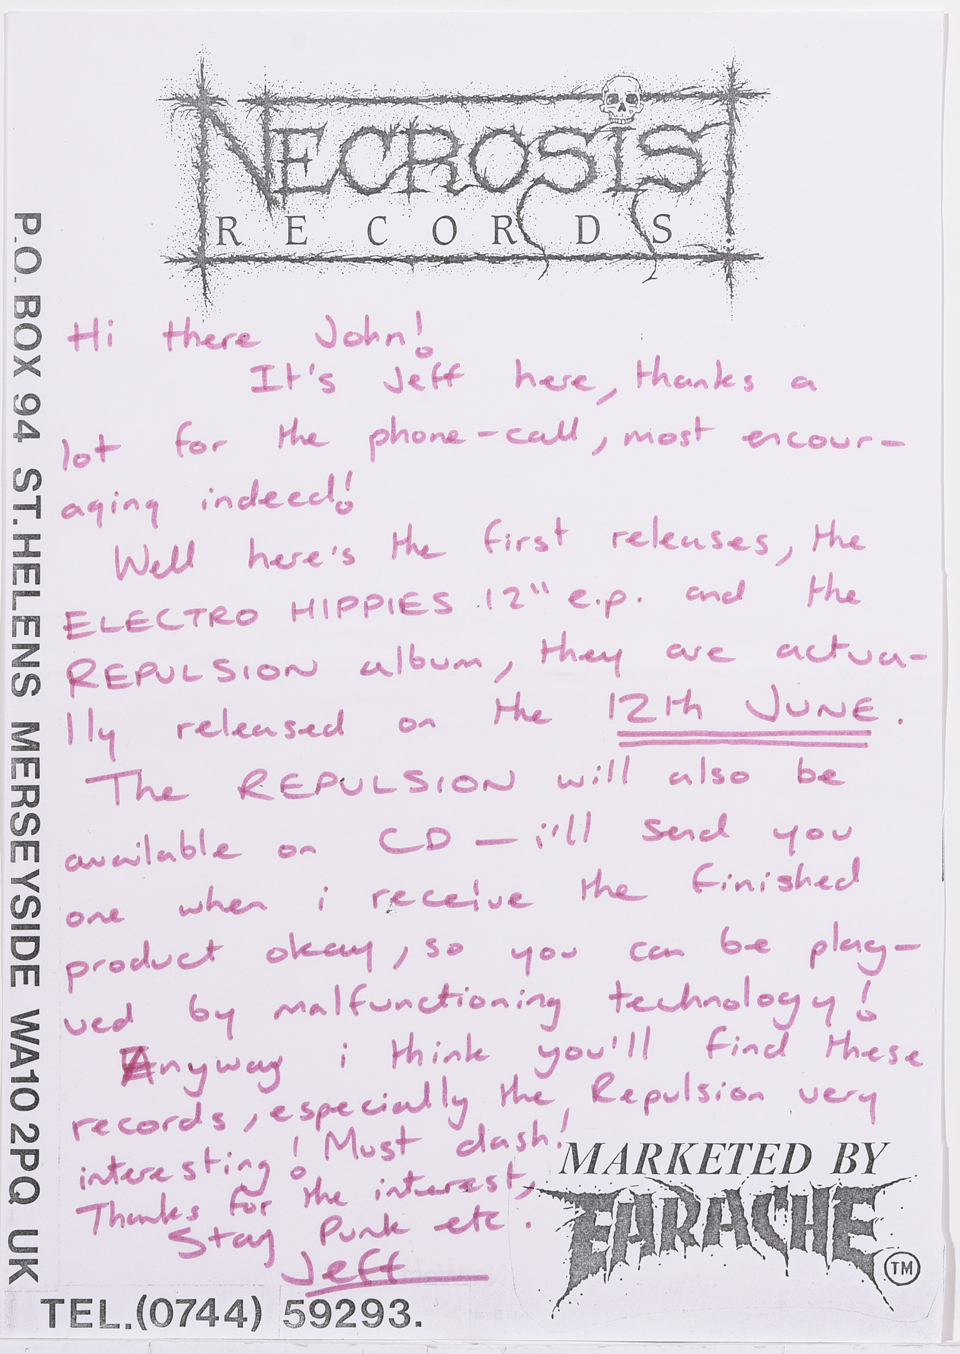 NECROSIS
RECORDS
P.O. BOX 94 ST.HELENS MERSEYSIDE WA10 2PQ UK
Hi there John!
It's Jeff here, thanks a
lot for the phone-call, most encour-
aging indeed!
Well here's the first releases, the
ELECTRO HIPPIES 12" e.p. and the
REPULSION album, they are actua-
lly released on the 12th JUNE.
The REPULSION will also be
available on CD — i'll send you
one when i receive the finished
product okay, so you can be plag-
ued by malfunctioning technology!
Anyway i think you'll find these
records, especially the, Repulsion very
interesting! Must dash!
Thanks for the interest,
Stay Punk etc.
Jeff
MARKETED BY
EARACHE
TM
TEL.(0744) 59293.